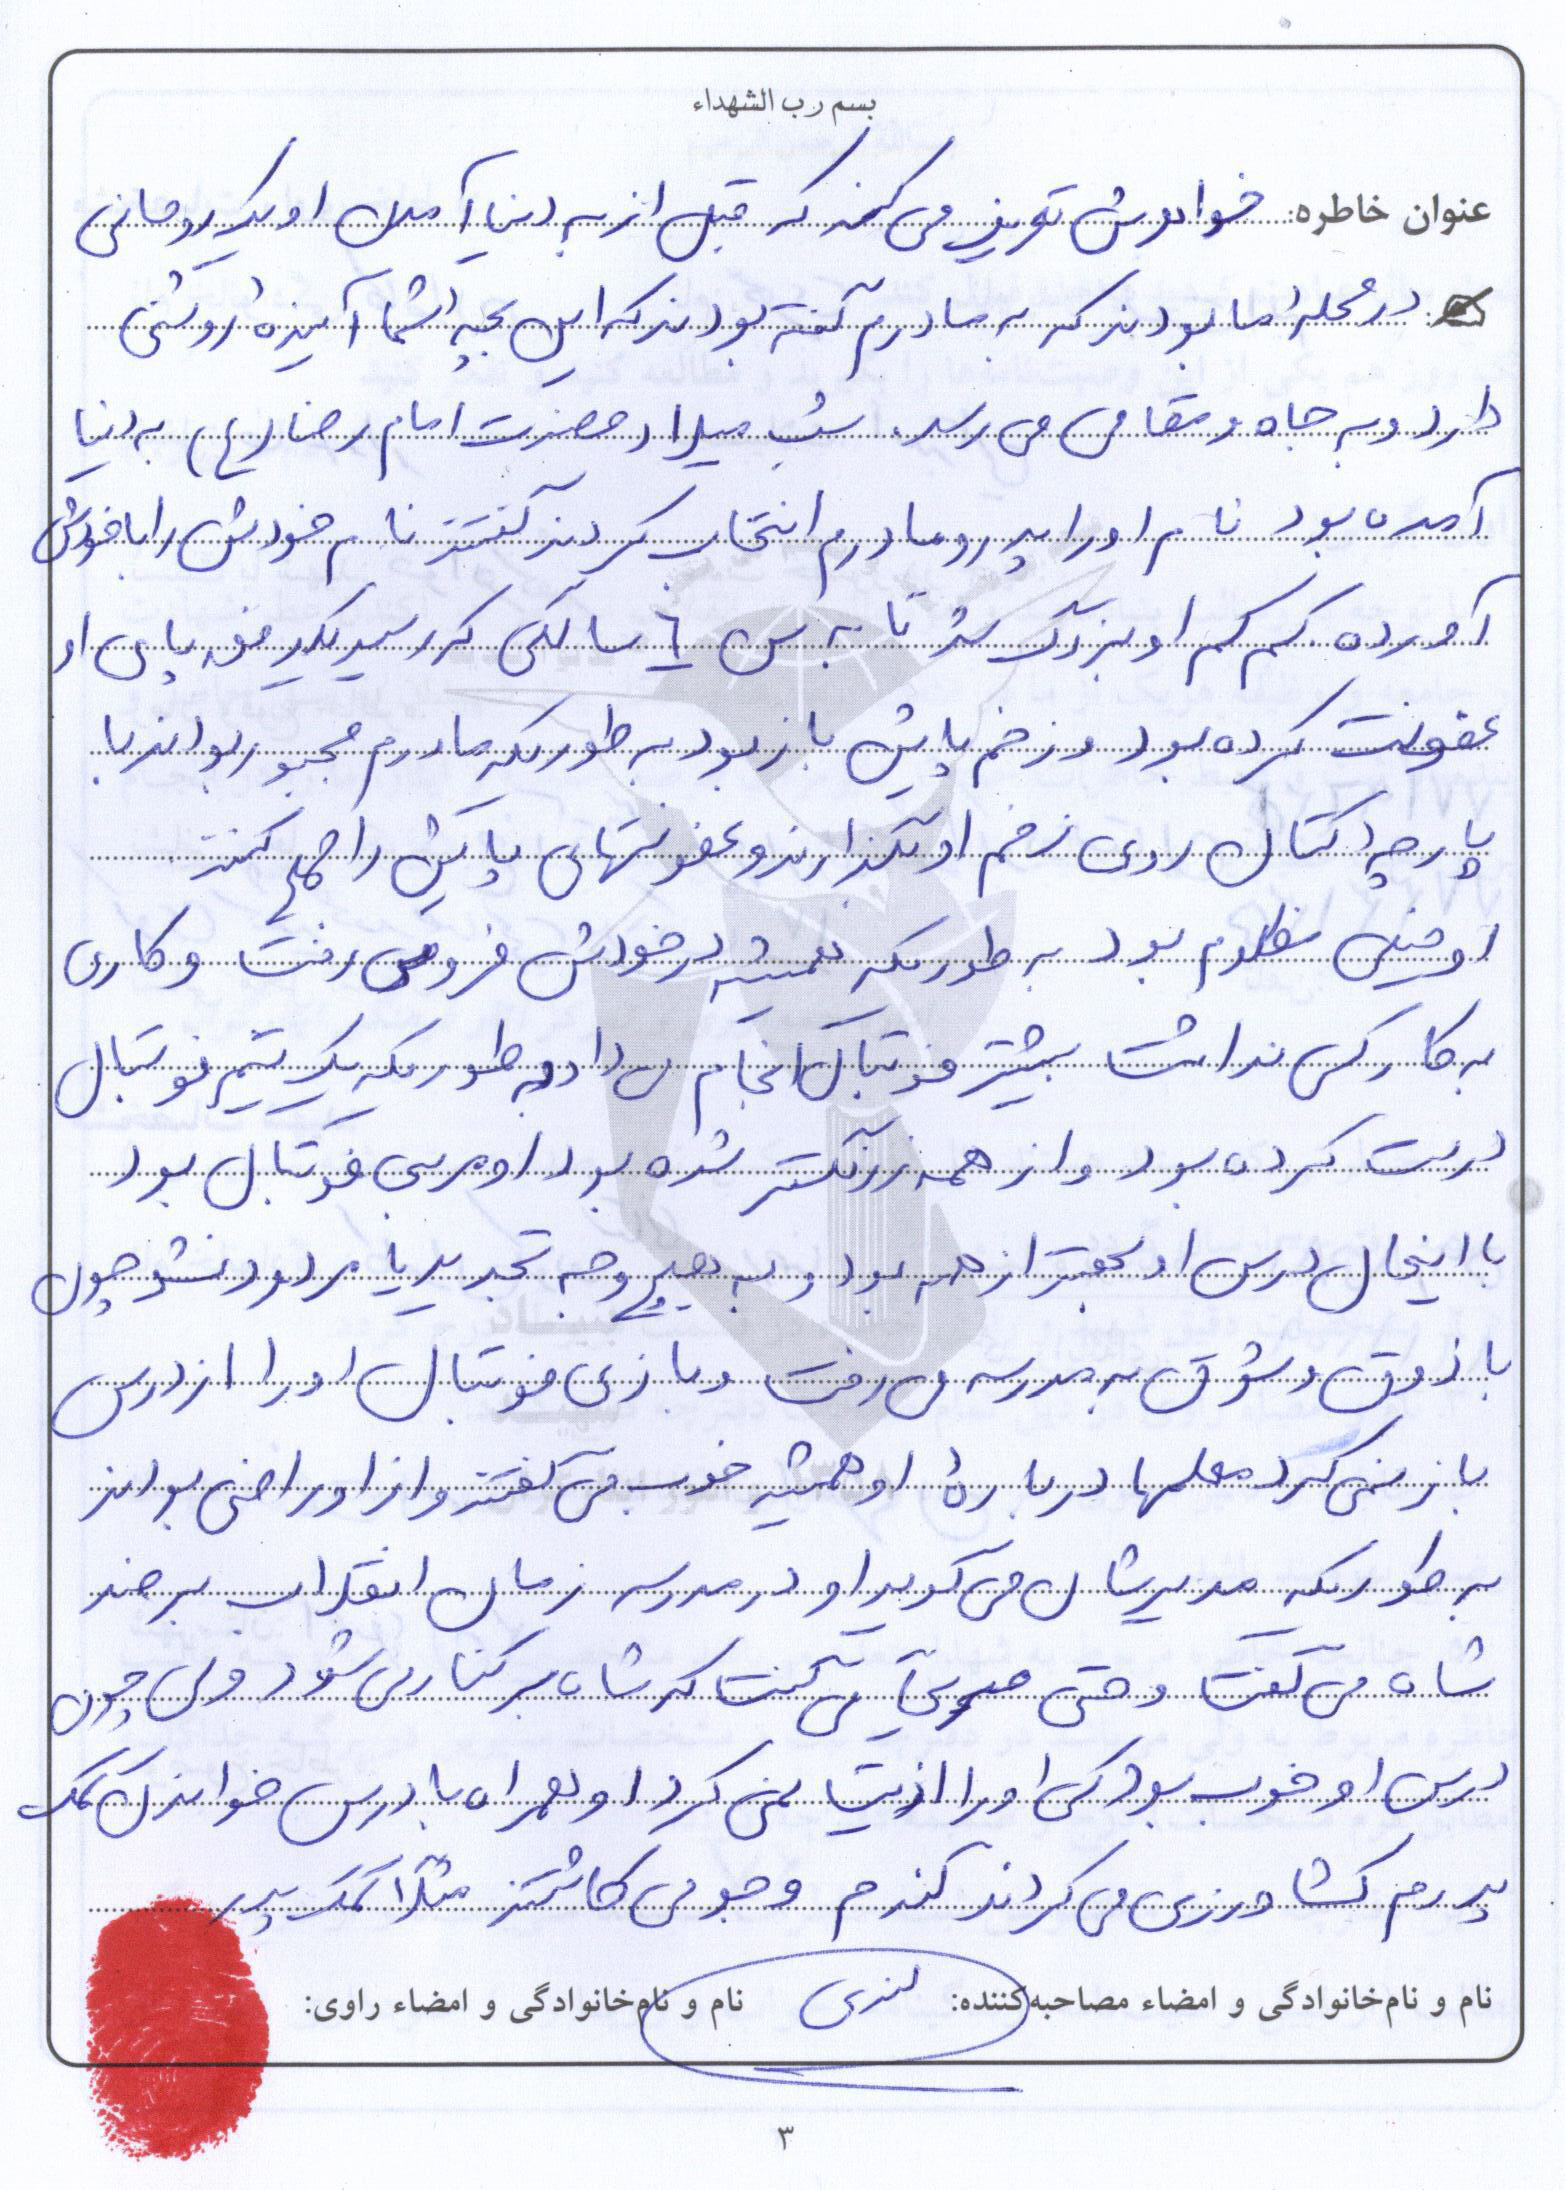 بسم رب الشهداء
عنوان خاطره: خواهرش تعریف می کند که قبل از به دنیا آمدن او یک روحانی
در محله ما بودند که به مادرم گفته بودند که این بچه شما آینده روشنی
دارد و به جاه و مقامی می رسد. شب میلاد حضرت امام رضا (ع) به دنیا
آمده بود نام او را پدر و مادرم انتخاب کردند گفتند نام خودش را با خودش
آورده. کم کم او بزرگ شد تا به سن ٦ سالگی که رسید یکدفعه پای او
عفونت کرده بود و زخم پایش باز بود به طوریکه مادرم مجبور بودند با
پارچه کتان روی زخم او بگذارند و عفونتهای پایش را جمع کنند.
او خیلی مظلوم بود به طوریکه همیشه در خودش فرو می رفت و کاری
به کار کسی نداشت بیشتر فوتبال انجام می داد به طوریکه یک تیم فوتبال
درست کرده بود و از همه زرنگتر شده بود او مربی فوتبال بود
با اینحال درس او بهتر از همه بود و به هیچ وجه تجدید یا مردود نشد چون
با ذوق و شوق به مدرسه می رفت و بازی فوتبال او را از درس
باز نمی کرد معلمها درباره او همیشه خوب می گفتند و از او راضی بودند
به طوریکه مدیرشان می گوید او در مدرسه زمان انقلاب بر ضد
شاه می گفت و حتی صریحاً می گفت که شاه برکنار می شود ولی چون
درس او خوب بود کسی او را اذیت نمی کرد او همراه با درس خواندن کمک
پدرم کشاورزی می کردند گندم و جو می کاشتند مثلا کمک پدر
نام و نام‌خانوادگی و امضاء مصاحبه‌کننده:
نام و نام‌خانوادگی و امضاء راوی:
۳